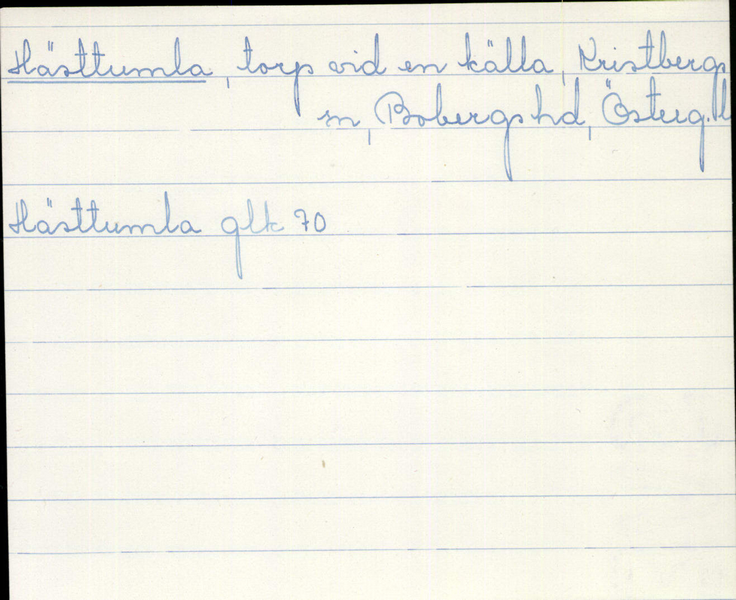 Hästtumla, torp vid en källa, Kristbergs
sn, Bobergs hd, Österg. l
Hästtumla glk 70